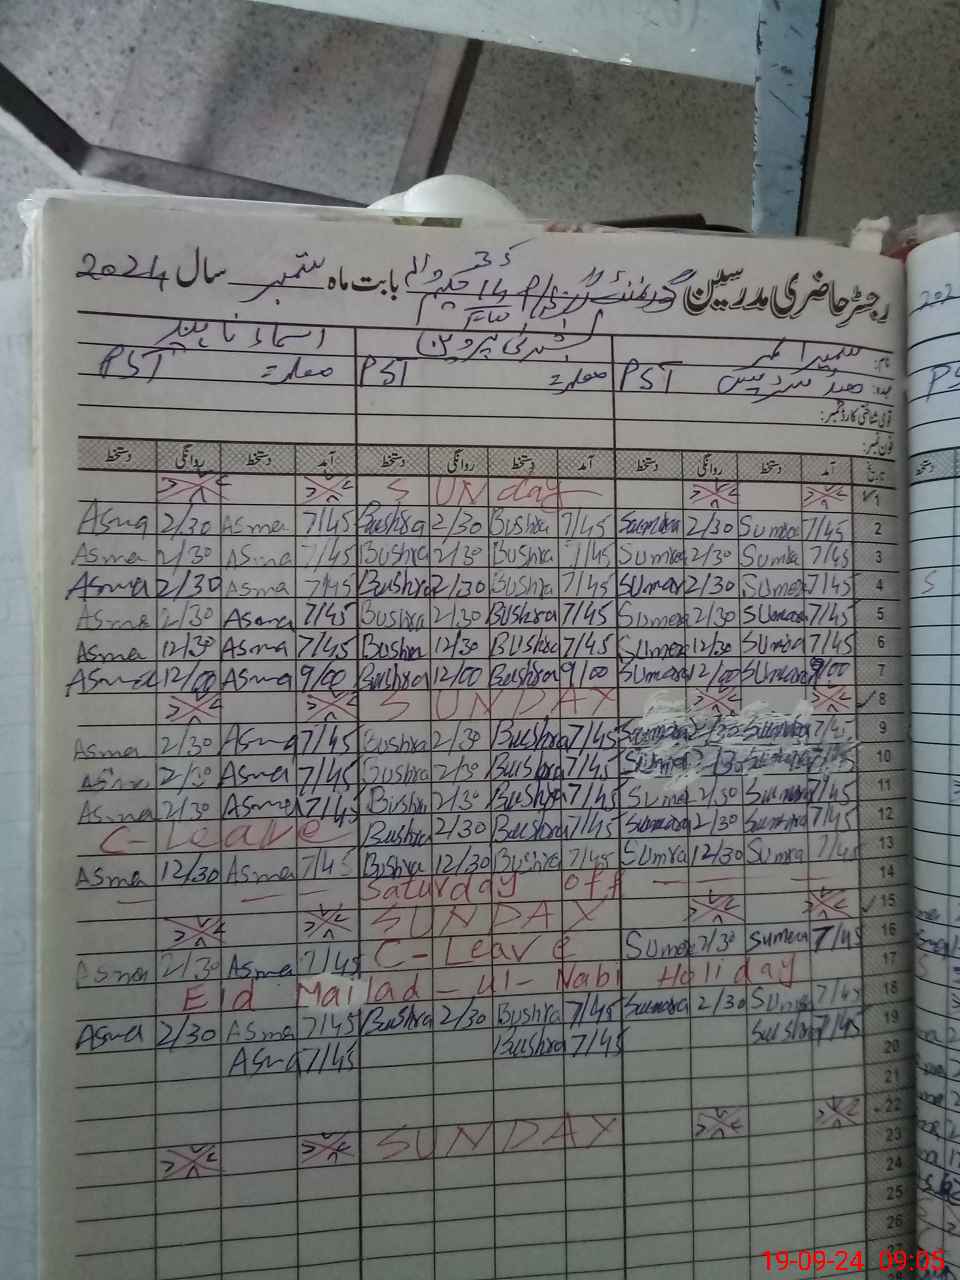 رجسٹر حاضری مدرسین گورنمنٹ بابت ماہ ستمبر سال 2024
نام: سمیرا بشریٰ پروین اسماء ناہید
عہدہ: ہیڈ مسٹریس PST معلمہ PST معلمہ PST
قومی شناختی کارڈ نمبر:
فون نمبر:
تاریخ آمد دستخط روانگی دستخط آمد دستخط روانگی دستخط آمد دستخط روانگی دستخط
SUNday 1
Asma 2/30 Asma 7/45 Bushra 2/30 Bushra 7/45 Sumera 2/30 Sumera 7/45 2
Asma 2/30 Asma 7/45 Bushra 2/30 Bushra 7/45 Sumra 2/30 Sumra 7/45 3
Asma 2/30 Asma 7/45 Bushra 2/30 Bushra 7/45 Sumera 2/30 Sumera 7/45 4
Asma 2/30 Asma 7/45 Bushra 2/30 Bushra 7/45 Sumera 2/30 Sumera 7/45 5
Asma 12/30 Asma 7/45 Bushra 12/30 Bushra 7/45 Sumera 12/30 Sumra 7/45 6
Asma 12/00 Asma 9/00 Bushra 12/00 Bushra 9/00 Sumara 12/00 Sumara 9/00 7
SUNDAY 8
Asma 2/30 Asma 7/45 Bushra 2/30 Bushra 7/45 Sumara 2/30 Sumara 7/45 9
Asma 2/30 Asma 7/45 Bushra 2/30 Bushra 7/45 2/30 7/45 10
Asma 2/30 Asma 7/45 Bushra 2/30 Bushra 7/45 Sumera 2/30 Sumara 7/45 11
C-Leave Bushra 2/30 Bushra 7/45 Sumara 2/30 Sumara 7/45 12
Asma 12/30 Asma 7/45 Bushra 12/30 Bushra 7/45 Sumra 12/30 Sumra 7/45 13
— — — Saturday off — — — 14
SUNDAY 15
Asma 2/30 Asma 7/45 C-Leave Sumera 2/30 Sumera 7/45 16
Eid Mailad-ul-Nabi Holiday 17
Asma 2/30 Asma 7/45 Bushra 2/30 Bushra 7/45 Sumara 2/30 Sumera 7/45 18
Asma 7/45 Bushra 7/45 7/45 19
20
21
SUNDAY 22
23
24
25
26
19-09-24 09:05